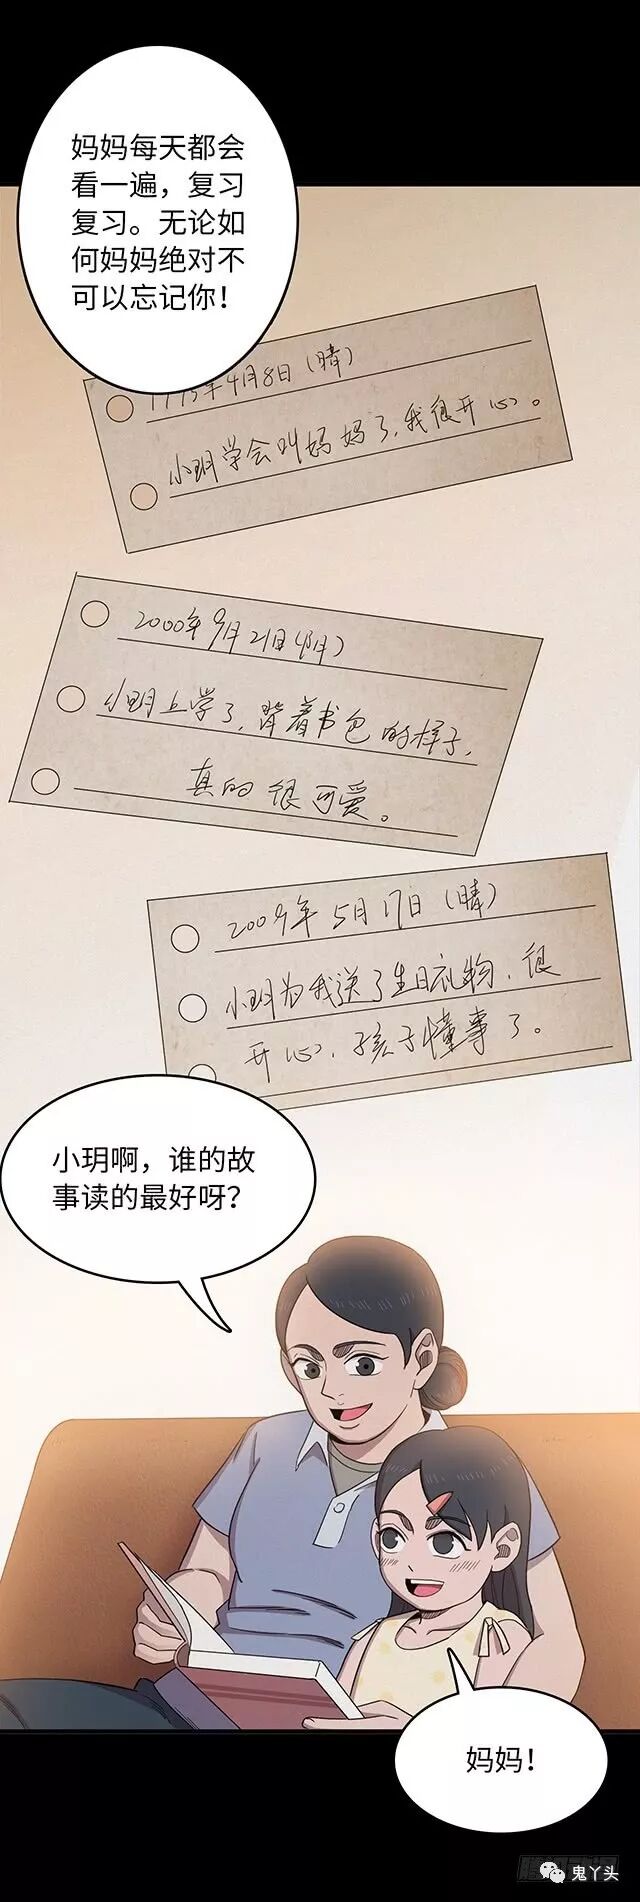 妈妈每天都会
看一遍，复习
复习。无论如
何妈妈绝对不
可以忘记你！
年4月8日（晴）
小玥学会叫妈妈了，我很开心。
2000年9月21日（阴）
小玥上学了，背着书包的样子，
真的很可爱。
2009年5月17日（晴）
小玥为我送了生日礼物，很
开心，孩子懂事了。
小玥啊，谁的故
事读的最好呀？
妈妈！
鬼丫头